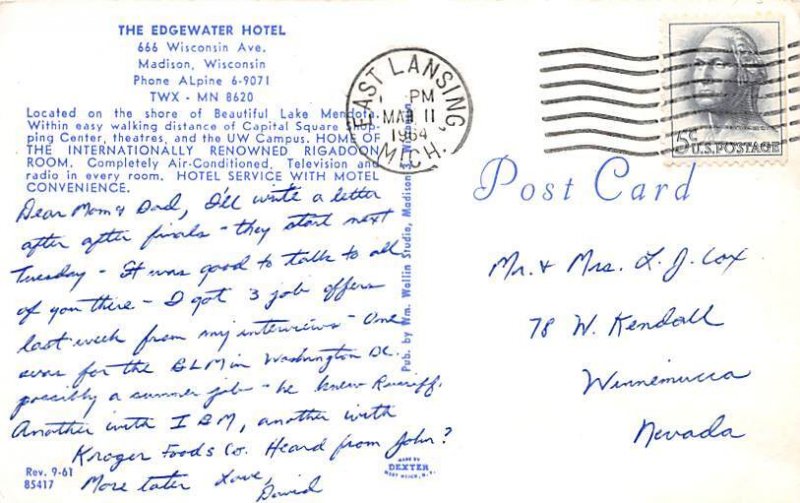 THE EDGEWATER HOTEL
666 Wisconsin Ave.
Madison, Wisconsin
Phone ALpine 6-9071
TWX - MN 8620
Located on the shore of Beautiful Lake Mendota.
Within easy walking distance of Capital Square Shop-
ping Center, theatres, and the UW Campus. HOME OF
THE INTERNATIONALLY RENOWNED RIGADOON
ROOM. Completely Air-Conditioned. Television and
radio in every room. HOTEL SERVICE WITH MOTEL
CONVENIENCE.
Dear Mom & Dad, I'll write a letter
after after finals - they start next
Tuesday - It was good to talk to all
of you there - I got 3 job offers
last week from my interviews - One
was for the BLM in Washington DC.
possibly a summer job - he knew
Another with IBM, another with
Kroger Foods Co. Heard from John?
More later Love,
David
Rev. 9-61
85417
Pub. by Wm. Wollin Studio, Madison
EAST LANSING
PM
MAR 11
1964
MICH.
5¢
U.S. POSTAGE
Post Card
Mr. & Mrs. L. J. Cox
78 W. Kendall
Winnemucca
Nevada
MADE BY
DEXTER
WEST NYACK, N.Y.